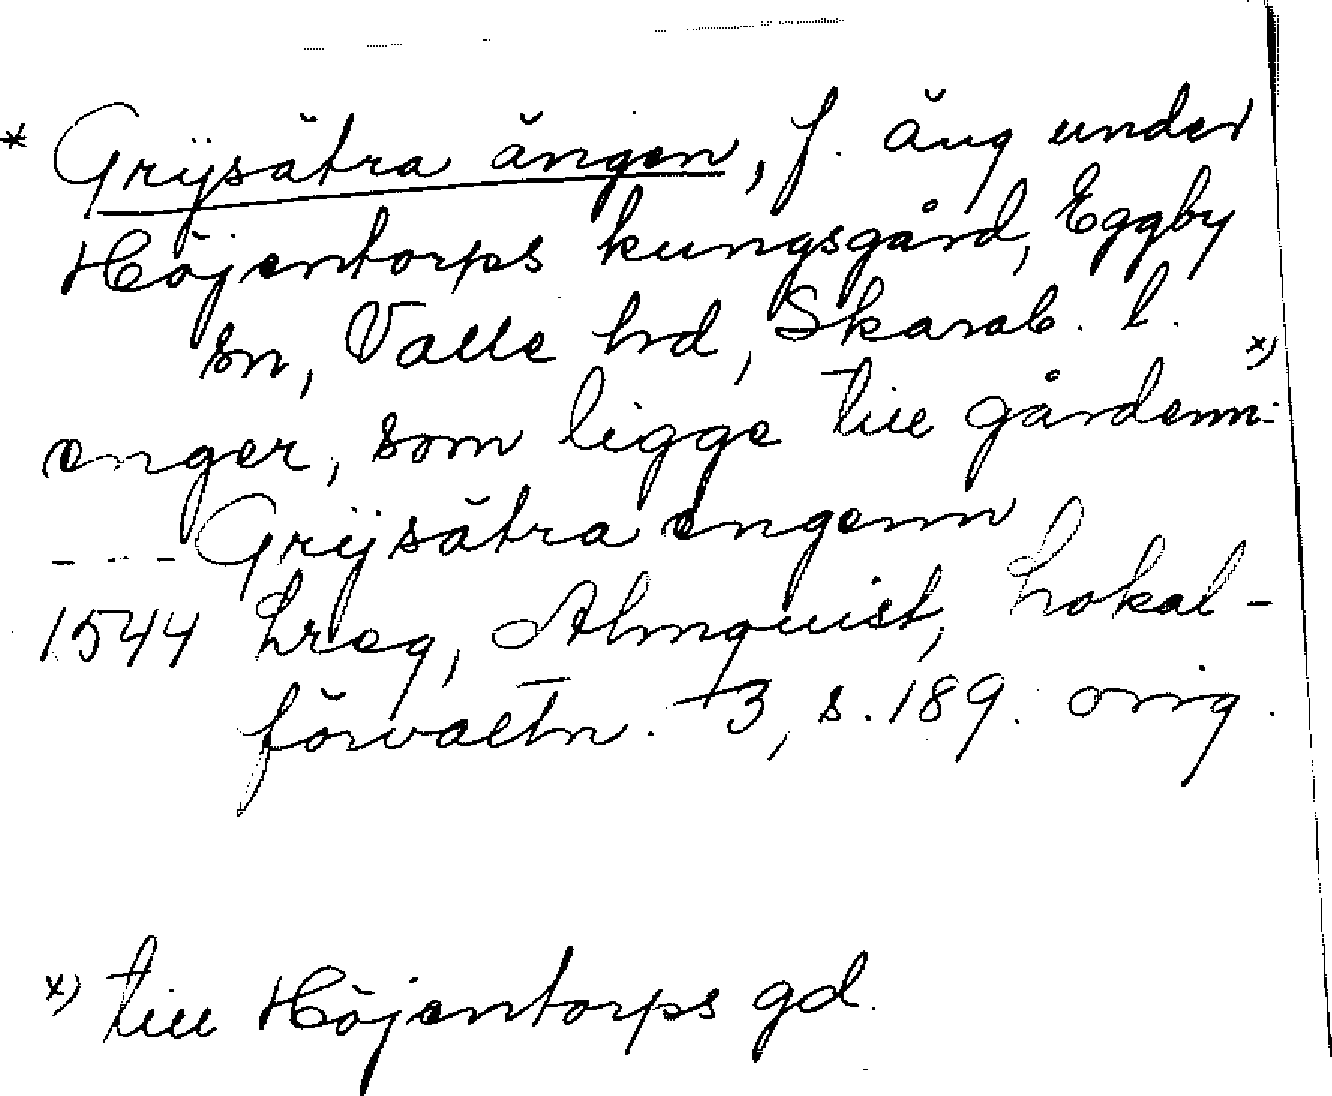 * Grijsätra ängen, f. äng under
Höjentorps kungsgård, Eggby
sn, Valle hd, Skarab. l.
enger, som ligge till gårdenn x)
- - - Grijsätra engenn
1544 hreg, Almquist, Lokal-
förvaltn. 3, s. 189. orig.
x) till Höjentorps gd.